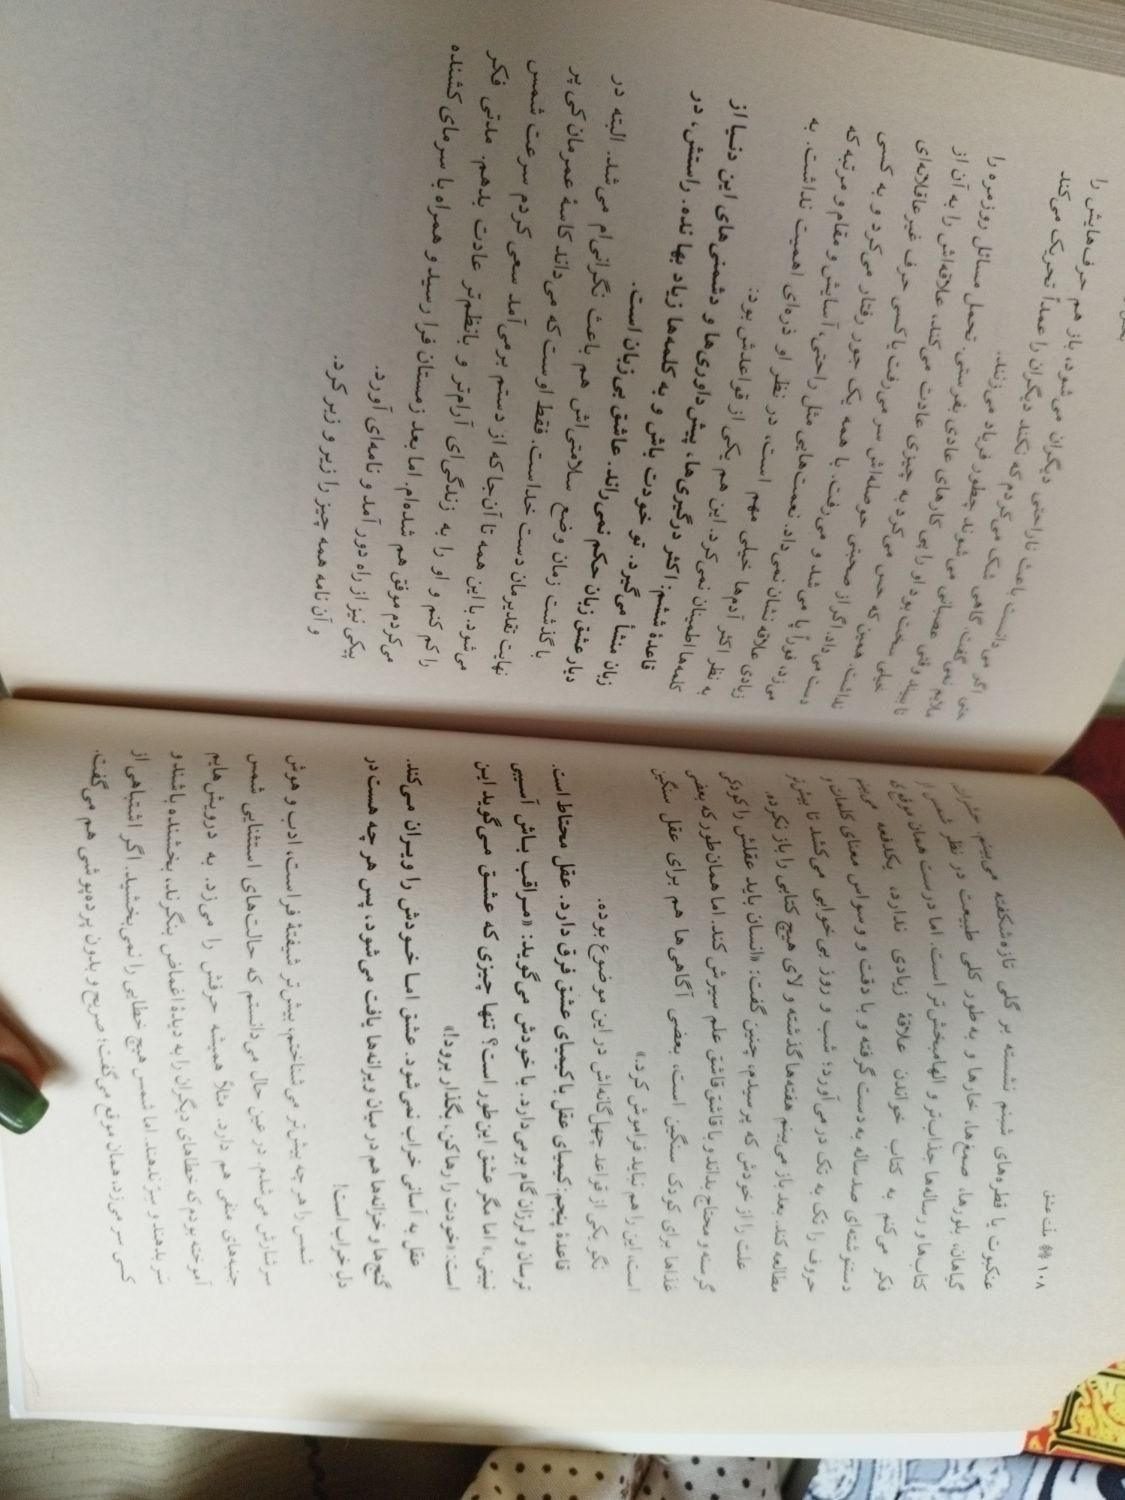 ۱۰۸ ملت عشق
عنکبوت یا قطره‌های شبنم نشسته بر گلی تازه‌شکفته می‌بینم. حشرات،
گیاهان، بلورها، صمغ‌ها، خارها و به‌طور کلی طبیعت در نظر شمس از
کتاب‌ها و رساله‌ها جذاب‌تر و الهام‌بخش‌تر است. اما درست همان موقع که
فکر می‌کنم به کتاب خواندن علاقهٔ زیادی ندارد، یکدفعه می‌بینم
دستنوشته‌ای صدساله به دست گرفته و با دقت و وسواس معنای کلمات و
حروف را تک به تک در می‌آورد؛ شب و روز بی‌خوابی می‌کشد تا بیش‌تر
مطالعه کند. بعد باز می‌بینم هفته‌ها گذشته و لای هیچ کتابی را باز نکرده.
علت را از خودش که پرسیدم، چنین گفت: «انسان باید عقلش را کودکی
گرسنه و محتاج بداند و با قاشق قاشق علم سیرش کند. اما همان‌طور که بعضی
غذاها برای کودک سنگین است، بعضی آگاهی‌ها هم برای عقل سنگین
است، این را هم نباید فراموش کرد.»
نگو یکی از قواعد چهل‌گانه‌اش در این موضوع بوده.
قاعدهٔ پنجم: کیمیای عقل با کیمیای عشق فرق دارد. عقل محتاط است.
ترسان و لرزان گام برمی‌دارد. با خودش می‌گوید: «مراقب باش آسیبی
نبینی.» اما مگر عشق این‌طور است؟ تنها چیزی که عشق می‌گوید این
است: «خودت را رها کن، بگذار برود!»
عقل به آسانی خراب نمی‌شود. عشق اما خودش را ویران می‌کند.
گنج‌ها و خزانه‌ها هم در میان ویرانه‌ها یافت می‌شود، پس هر چه هست در
دلِ خراب است!
شمس را هر چه بیش‌تر می‌شناختم، بیش‌تر شیفتهٔ فراست، ادب و هوش
سرشارش می‌شدم. در عین حال می‌دانستم که حالت‌های استثنایی شمس
جنبه‌های منفی هم دارد. مثلاً همیشه حرفش را می‌زد. به درویش‌هایم
آموخته بودم که خطاهای دیگران را به دیدهٔ اغماض بنگرند، بخشنده باشند و
سر بدهند و سِر ندهند. اما شمس هیچ خطایی را نمی‌بخشید. اگر اشتباهی از
کسی سر می‌زد، همان موقع می‌گفت؛ صریح و بدون پرده‌پوشی هم می‌گفت.
اگر می‌دانست باعث ناراحتی دیگران می‌شود، باز هم حرف‌هایش را
گاهی شک می‌کردم که نکند دیگران را عمداً تحریک می‌کند
عصبانی می‌شوند چطور فریاد می‌زنند.
کارهای عادی بفرستی. تحمل مسائل روزمره را
خیلی سخت بود او را پی
نداشت. همین که حس می‌کرد به چیزی عادت می‌کند، علاقه‌اش را به آن از
دست می‌داد. اگر از صحبتی حوصله‌اش سر می‌رفت یا کسی حرف غیرعاقلانه‌ای
می‌زد، فوراً پا می‌شد و می‌رفت. با همه یک جور رفتار می‌کرد و به کسی
زیادی علاقه نشان نمی‌داد. نعمت‌هایی مثل راحتی، آسایش و مقام و مرتبه که
به نظر اکثر آدم‌ها خیلی مهم است، در نظر او ذره‌ای اهمیت نداشت. به
کلمه‌ها اطمینان نمی‌کرد. این هم یکی از قواعدش بود:
قاعدهٔ ششم: اکثر درگیری‌ها، پیش‌داوری‌ها و دشمنی‌های این دنیا از
زبان منشأ می‌گیرد. تو خودت باش و به کلمه‌ها زیاد بها نده. راستش، در
دیار عشق زبان حکم نمی‌راند. عاشق بی‌زبان است.
با گذشت زمان وضع سلامتی‌اش هم باعث نگرانی‌ام می‌شد. البته در
نهایت تقدیرمان دست خداست. فقط اوست که می‌داند کاسهٔ عمرمان کی پر
می‌شود. با این همه تا آن‌جا که از دستم برمی‌آمد سعی کردم سرعت شمس
را کم کنم و او را به زندگی‌ای آرام‌تر و بانظم‌تر عادت بدهم. مدتی فکر
می‌کردم موفق هم شده‌ام. اما بعد زمستان فرا رسید و همراه با سرمای کشنده
پیکی نیز از راه دور آمد و نامه‌ای آورد.
و آن نامه همه چیز را زیر و زبر کرد.